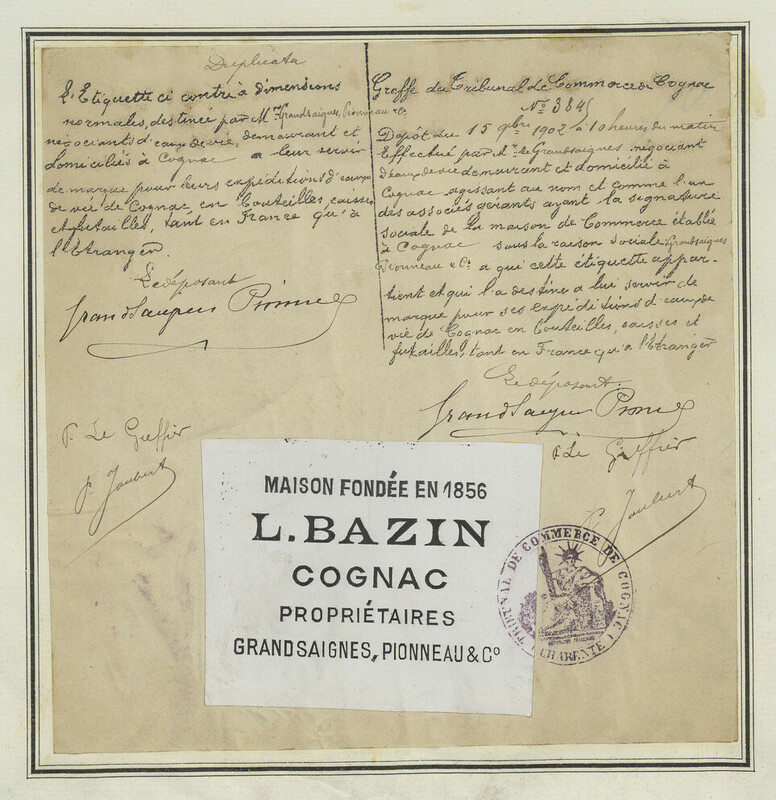 Duplicata
L'Etiquette ci contre à dimensions
normales, destinée par Mrs Grandsaignes, Pionneau & Co.
négociants d'eaux de vie, demeurant et
domiciliés à Cognac a leur servir
de marque pour leurs expéditions d'eaux
de vie de Cognac en bouteilles, caisses
et futailles, tant en France qu'à
l'Etranger.
Le déposant
Grandsaignes Pionneau
P. Le Greffier
P. Joubert
Greffe du Tribunal de Commerce de Cognac
No 384
Dépôt du 15 9bre 1902 à 10 heures du matin
Effectué par Mr. de Grandsaignes négociant
d'eaux de vie demeurant et domicilié à
Cognac agissant au nom et comme l'un
des associés gérants ayant la signature
sociale de la maison de Commerce établie
à Cognac sous la raison sociale Grandsaignes
Pionneau & Co a qui cette étiquette appar-
tient et qui l'a destine a lui servir de
marque pour ses expéditions d'eaux de
vie de Cognac en bouteilles, caisses et
futailles, tant en France qu'a l'Etranger
Le déposant.
Grandsaignes Pionneau
P. Le Greffier
P. Joubert
MAISON FONDÉE EN 1856
L. BAZIN
COGNAC
PROPRIÉTAIRES
GRANDSAIGNES, PIONNEAU & Co
TRIBUNAL DE COMMERCE DE COGNAC
(CHARENTE)